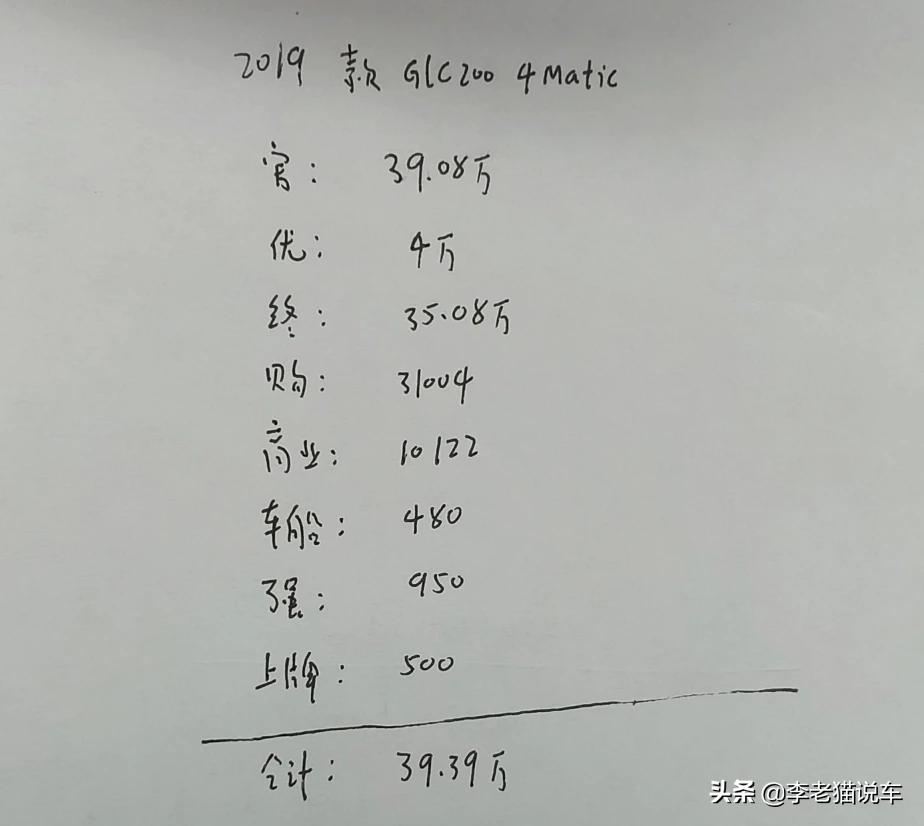 2019 款 GLC200 4Matic
官: 39.08万
优: 4万
终: 35.08万
购: 31004
商业: 10122
车船: 480
强: 950
上牌: 500
合计: 39.39万
头条 @李老猫说车